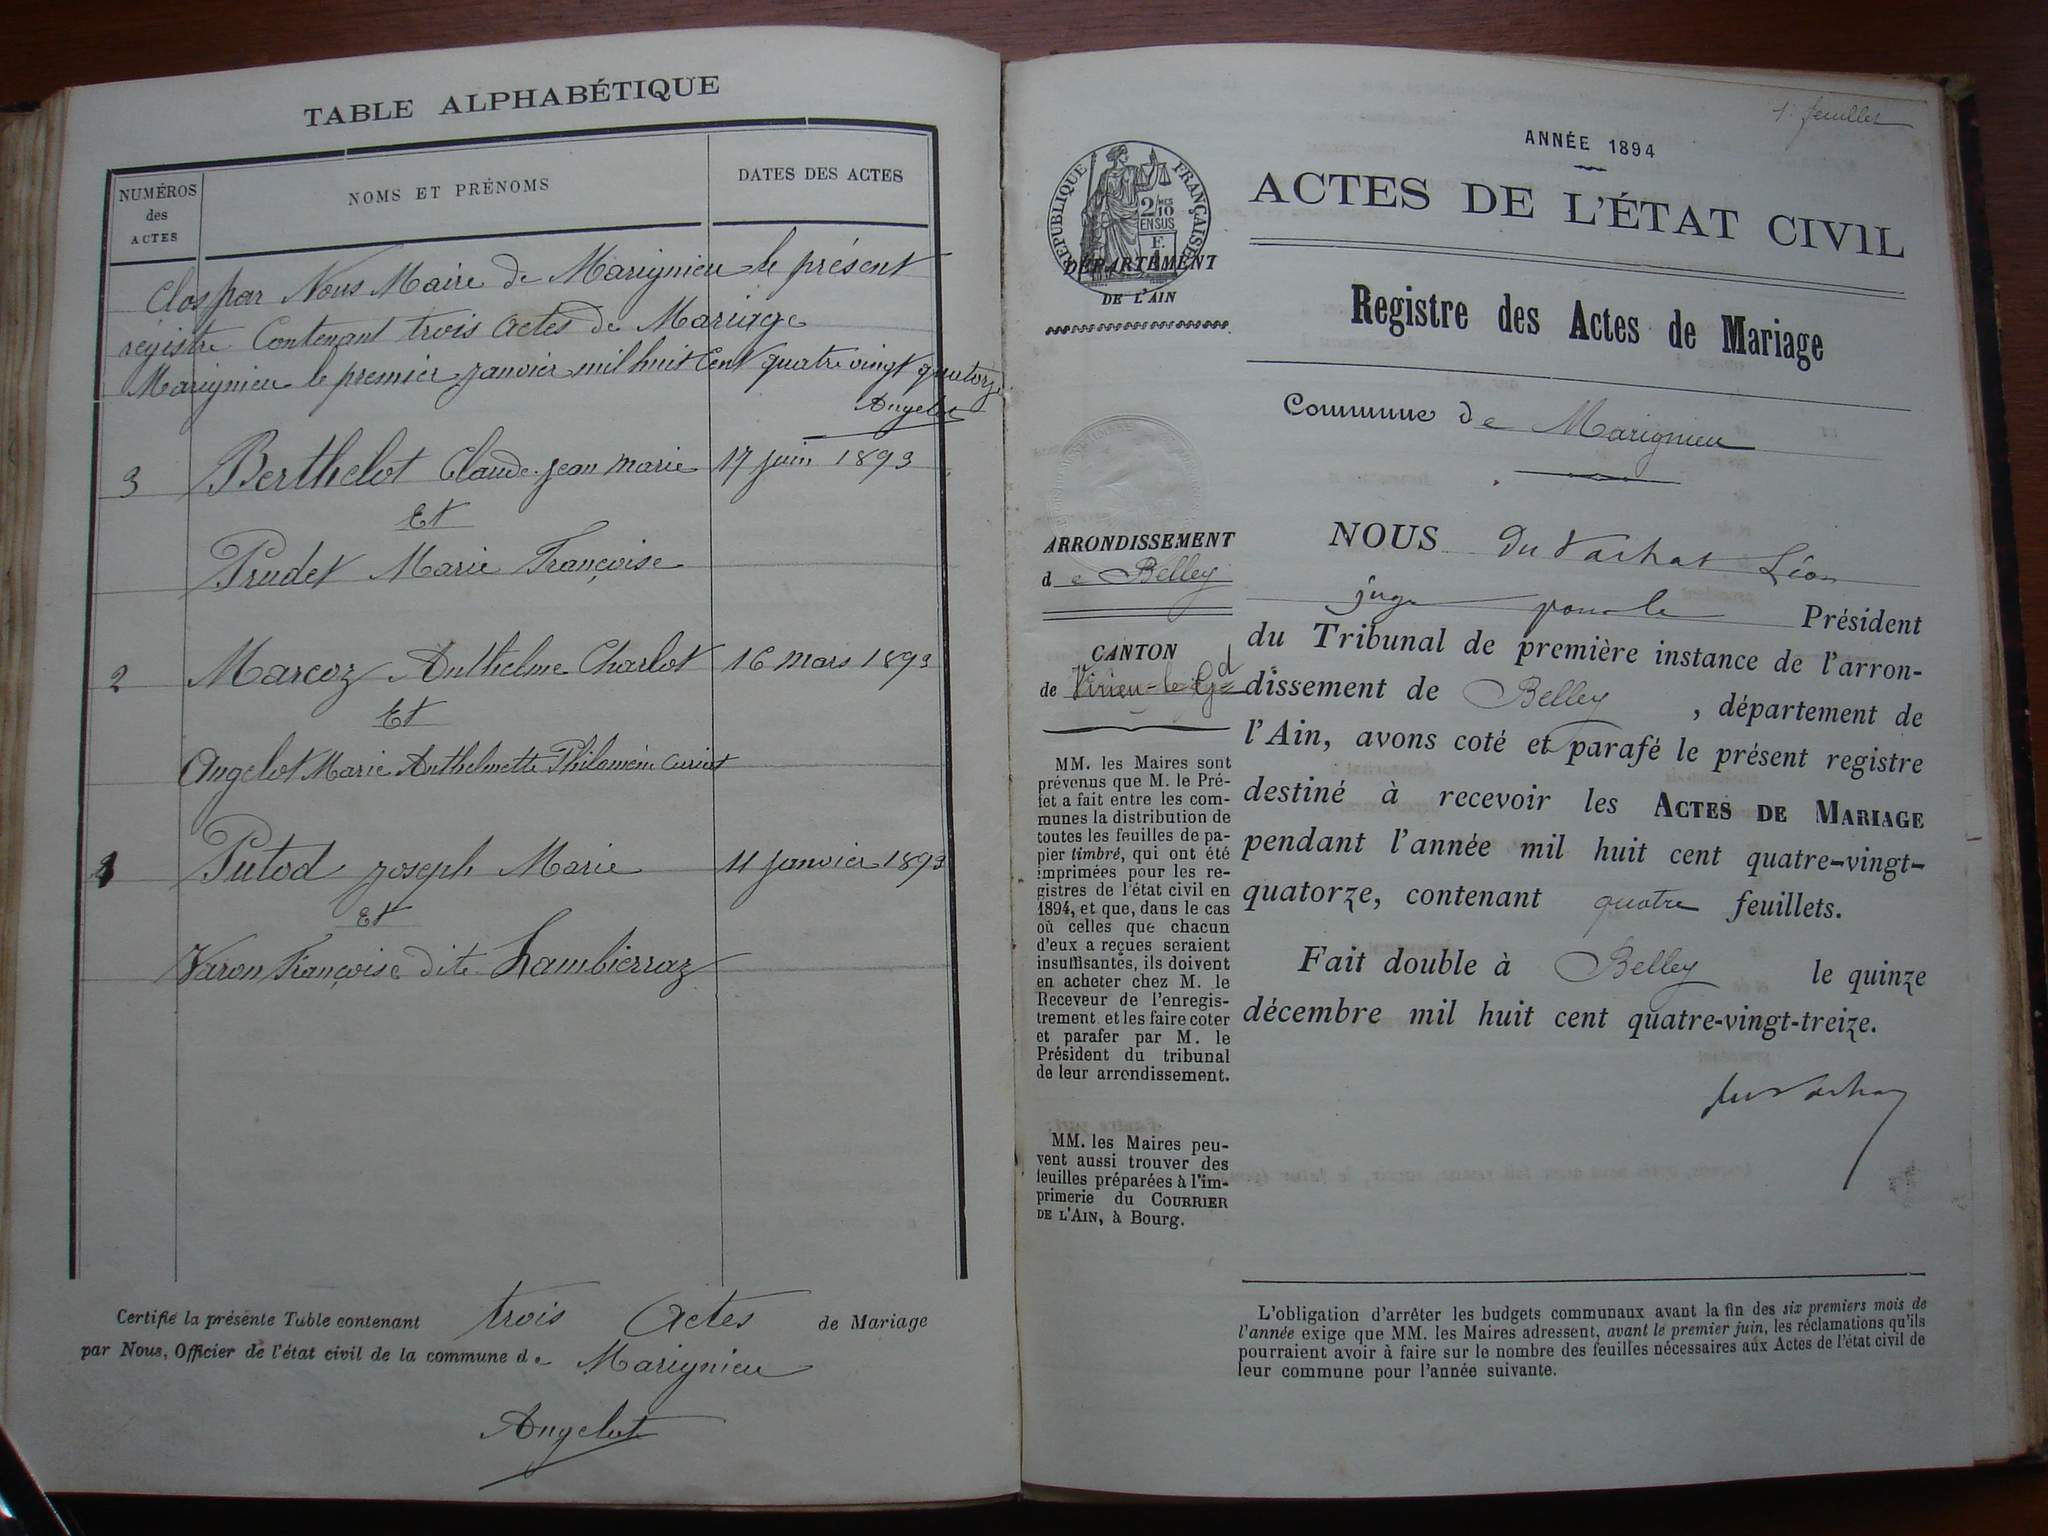 TABLE ALPHABÉTIQUE
NUMÉROS
des
ACTES
NOMS ET PRÉNOMS
DATES DES ACTES
Clos par Nous Maire de Marignieu le présent
régistre Contenant trois actes de Mariage
Marignieu le premier janvier mil huit Cent quatre vingt quatorze
Angelot
3 Berthelot Claude jean marie 17 juin 1893
Et
Prudet Marie Françoise
2 Marcoz Anthelme Charlot 16 mars 1893
Et
Angelot Marie Anthelmette
1 Putod joseph Marie 11 janvier 1893
Et
Varon Françoise dite Lambierraz
Certifié la présente Table contenant trois Actes de Mariage
par Nous, Officier de l'état civil de la commune de Marignieu
Angelot
1er feuillet
ANNÉE 1894
ACTES DE L'ÉTAT CIVIL
RÉPUBLIQUE FRANÇAISE
2/10
EN SUS
DÉPARTEMENT
DE L'AIN
Registre des Actes de Mariage
Commune de Marignieu
ARRONDISSEMENT
de Belley
CANTON
de Virieu-le-Gd
MM. les Maires sont
prévenus que M. le Pré-
fet a fait entre les com-
munes la distribution de
toutes les feuilles de pa-
pier timbré, qui ont été
imprimées pour les re-
gistres de l'état civil en
1894, et que, dans le cas
où celles que chacun
d'eux a reçues seraient
insuffisantes, ils doivent
en acheter chez M. le
Receveur de l'enregis-
trement et les faire coter
et parafer par M. le
Président du tribunal
de leur arrondissement.
MM. les Maires peu-
vent aussi trouver des
feuilles préparées à l'im-
primerie du COURRIER
DE L'AIN, à Bourg.
NOUS Du Vachat Léon
juge pour le Président
du Tribunal de première instance de l'arron-
dissement de Belley, département de
l'Ain, avons coté et parafé le présent registre
destiné à recevoir les ACTES DE MARIAGE
pendant l'année mil huit cent quatre-vingt-
quatorze, contenant quatre feuillets.
Fait double à Belley le quinze
décembre mil huit cent quatre-vingt-treize.
du Vachat
L'obligation d'arrêter les budgets communaux avant la fin des six premiers mois de
l'année exige que MM. les Maires adressent, avant le premier juin, les réclamations qu'ils
pourraient avoir à faire sur le nombre des feuilles nécessaires aux Actes de l'état civil de
leur commune pour l'année suivante.